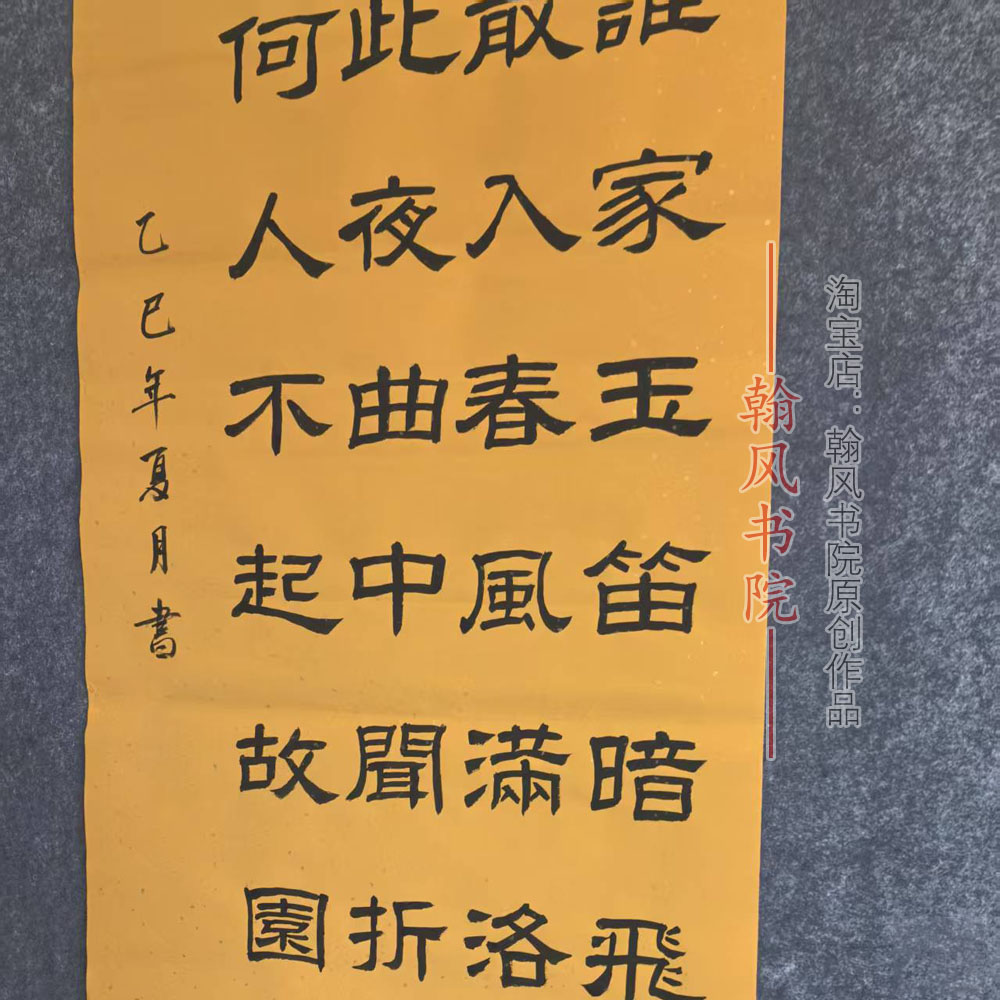 誰家玉笛暗飛
散入春風滿洛
此夜曲中聞折
何人不起故園
乙巳年夏月書
翰风书院
淘宝店：翰风书院原创作品